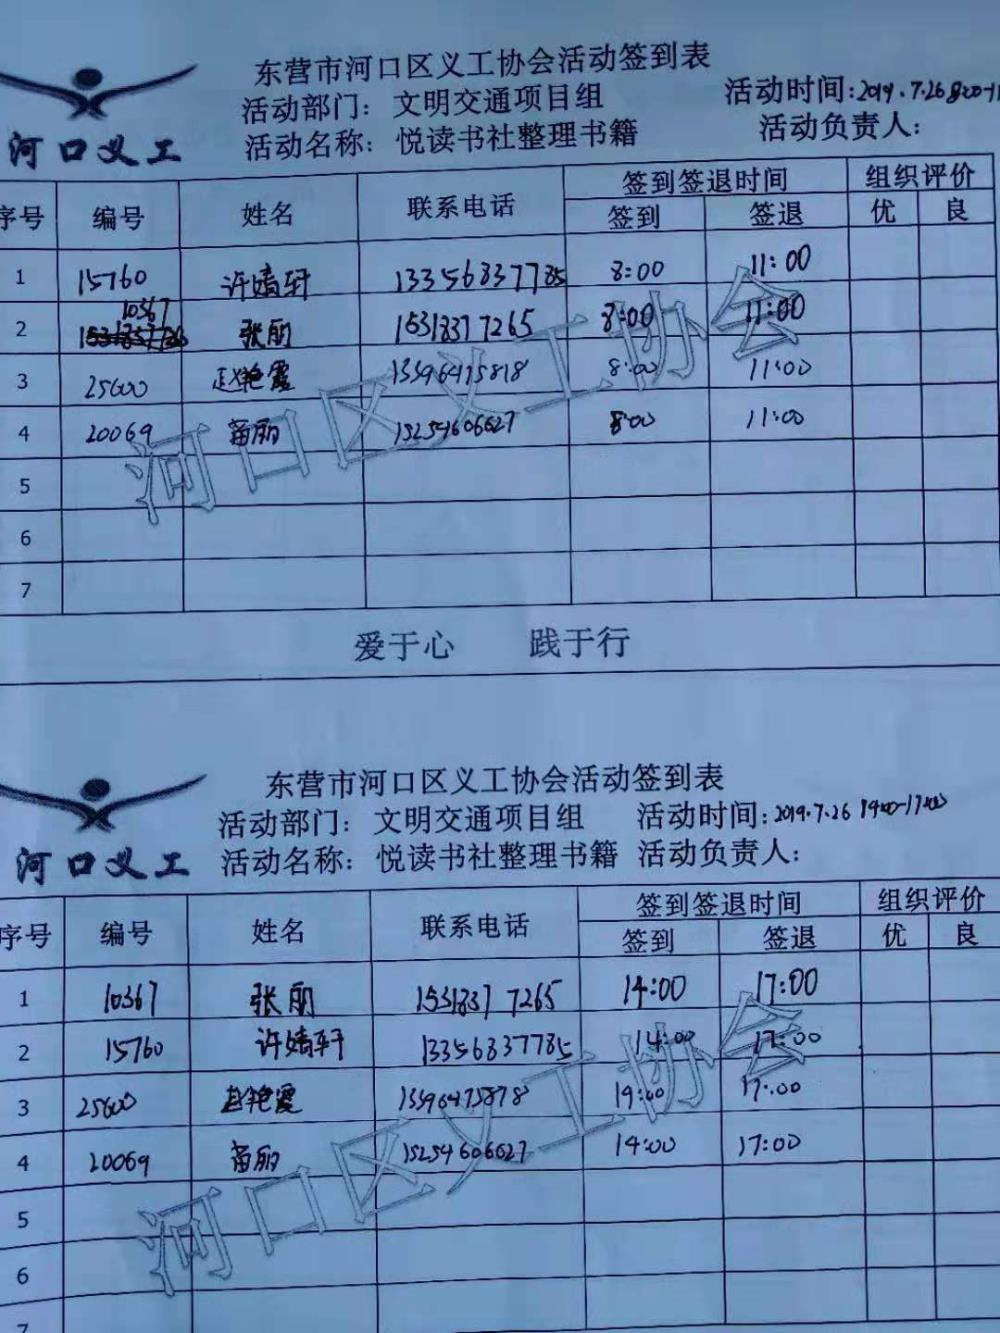 东营市河口区义工协会活动签到表
河口义工
活动部门：文明交通项目组 活动时间:2019.7.26 8:00-11
活动名称：悦读书社整理书籍 活动负责人：
序号 编号 姓名 联系电话 签到签退时间 组织评价
签到 签退 优 良
1 15760 许婧轩 13356837785 8:00 11:00
2 10367 张丽 15318377265 8:00 11:00
3 25600 赵艳霞 8:00 11:00
4 20069 苗丽 15254606627 8:00 11:00
5
6
7
河口区义工协会
爱于心 践于行
东营市河口区义工协会活动签到表
河口义工
活动部门：文明交通项目组 活动时间:2019.7.26 14:00-17:00
活动名称：悦读书社整理书籍 活动负责人：
序号 编号 姓名 联系电话 签到签退时间 组织评价
签到 签退 优 良
1 10367 张丽 15318377265 14:00 17:00
2 15760 许婧轩 13356837785 14:00 17:00
3 25600 赵艳霞 14:00 17:00
4 20069 苗丽 15254606627 14:00 17:00
5
6
7
河口区义工协会